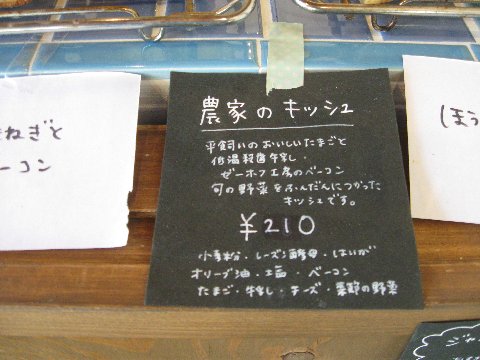 農家のキッシュ
平飼いのおいしいたまごと
低温殺菌牛乳・
ゼーホフ工房のベーコン
旬の野菜をふんだんにつかった
キッシュです。
¥210
小麦粉・レーズン酵母・はいが
オリーブ油・塩・ベーコン
たまご・牛乳・チーズ・季節の野菜
ねぎと
ーコン
ほう
ジャ